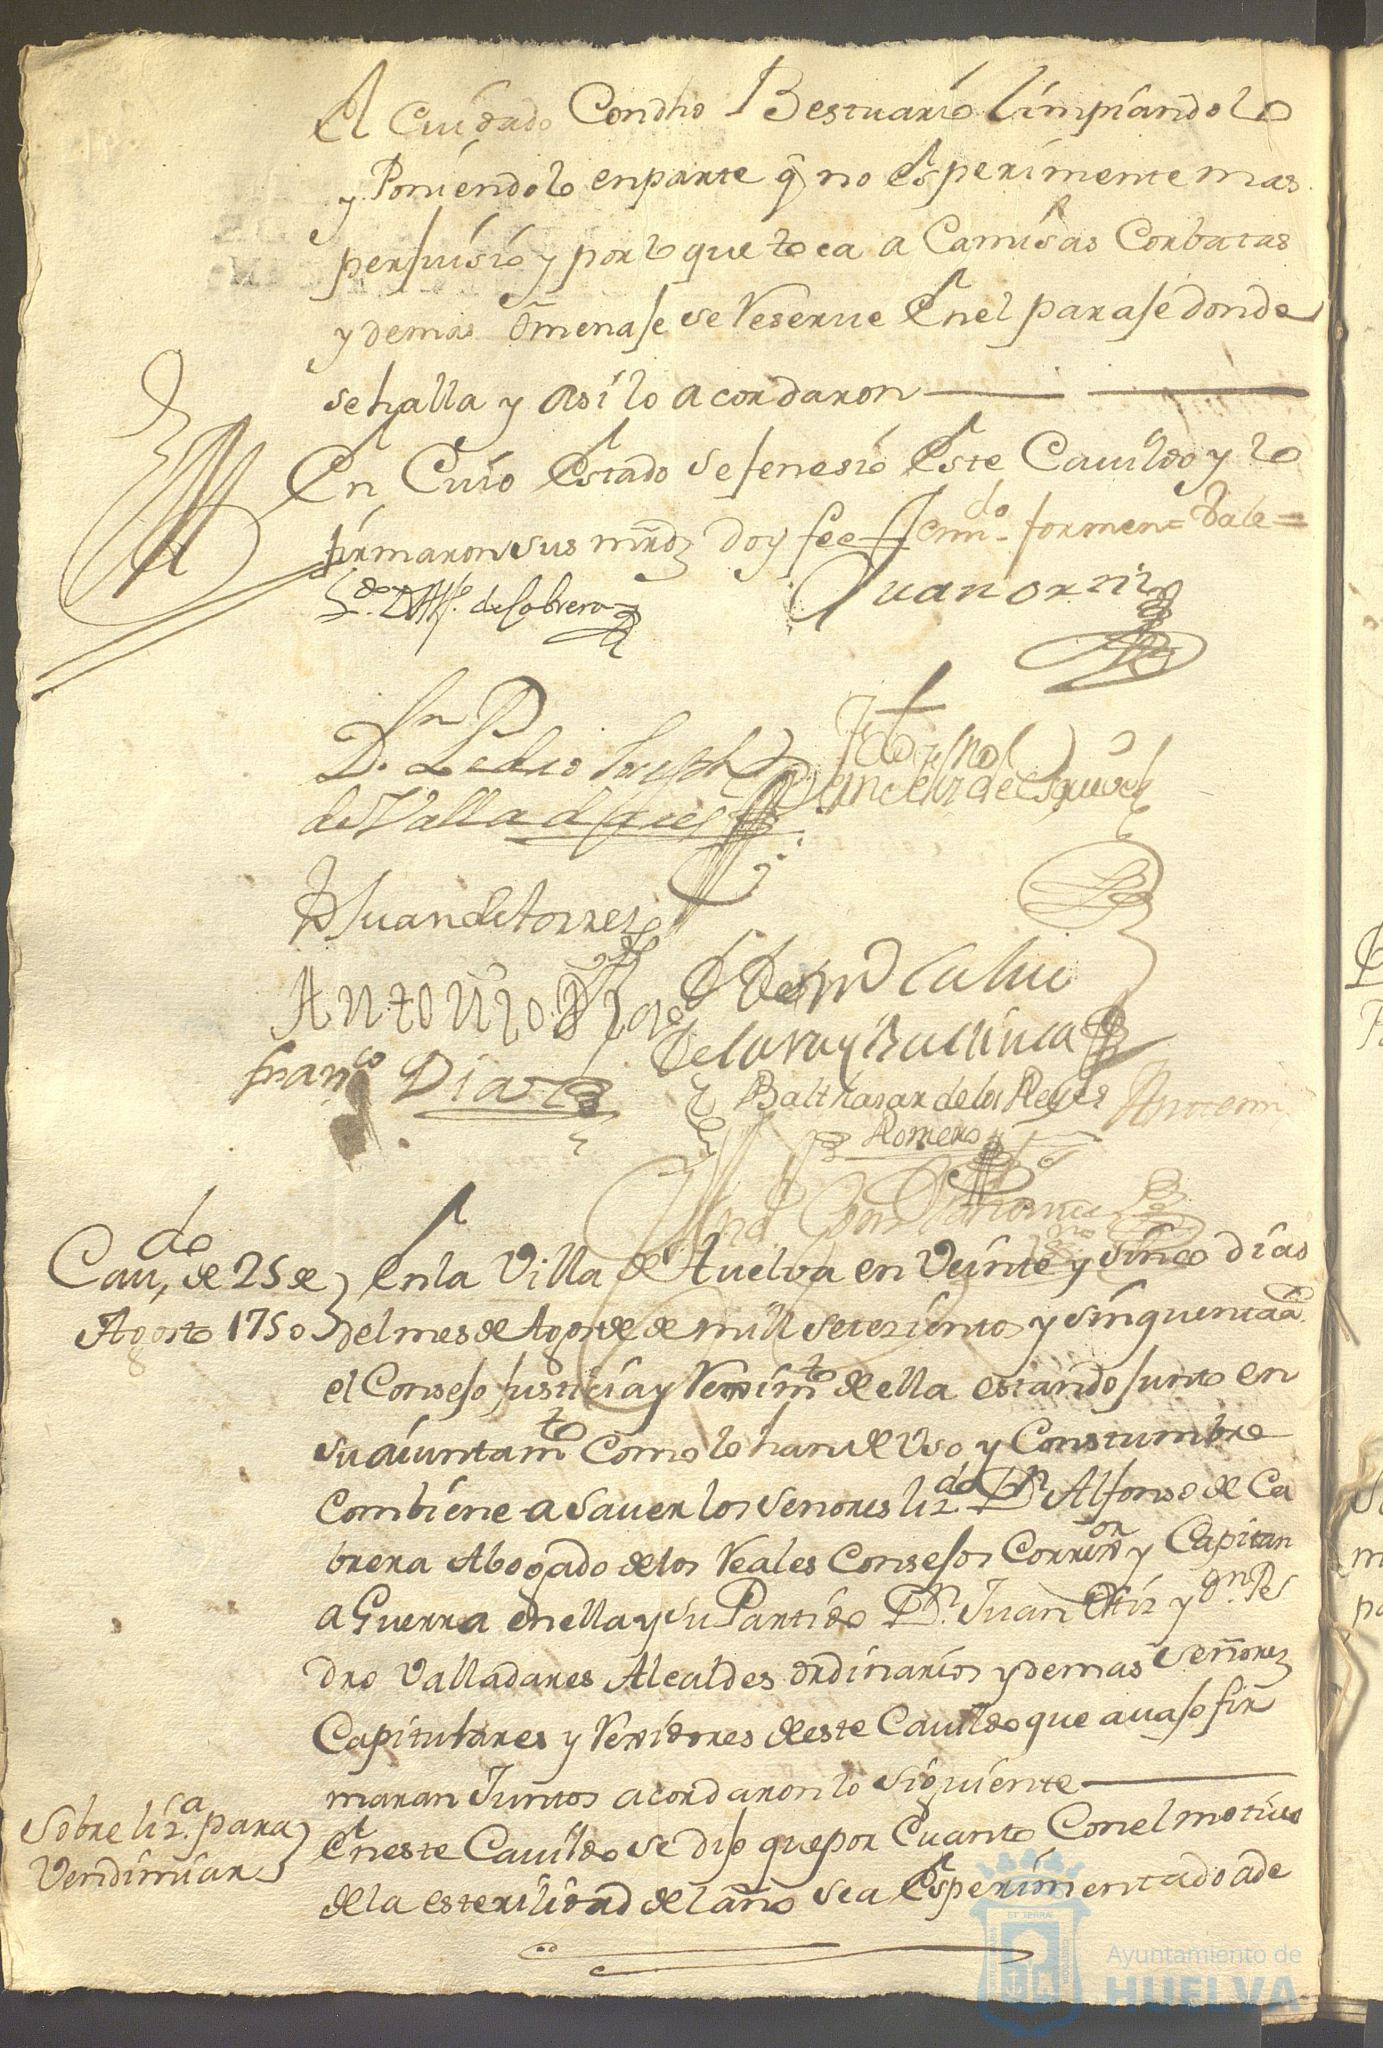 el Cuidado Condho Bestuario limpiandolo
y Poniendolo enparte q̃ no esperimente mas
perjuisio y por lo que toca a Camisas Corbatas
y demas omenaje se Reserve en el paraje donde
se halla y asi lo acordaron
En Cuio estado se fenesió este Cavildo y lo
firmaron sus mrdz doy fee = forment Vale =
Ldo. D Alfo. de Cabrera
Juan ortiz
Dn Pedro Joseph
de Valladares
de esquivel
D Juan de torres
Antonio
Franco Diaz
Balthasar de los Reyes
Romero
Cavdo, de 25 de
Agosto 1750
en la Villa de Huelva en Veinte y sinco dias
del mes de Agosto de mill setezientos y sinquenta a
el Consejo Justicia y Reximto de ella estando junto en
su aiuntamto como lo han de Uso y Constumbre
combiene a saver los señores lizdo Dn Alfonso de Ca
brera Abogado de los Reales Consejos Correxor y Capitan
a Guerra en ella y su Partido Dn Juan Ortiz y Dn Pe
dro Valladares Alcaldes ordinarios y demas señores
Capitulares y Rexidores de este Cavildo que avajo fir
maran Juntos acordaron lo siguiente
Sobre liza. para
Vendimiar
en este Cavildo se dijo que por Cuanto Con el motivo
de la esterilidad del año se a esperimentado a de
Ayuntamiento de
HUELVA